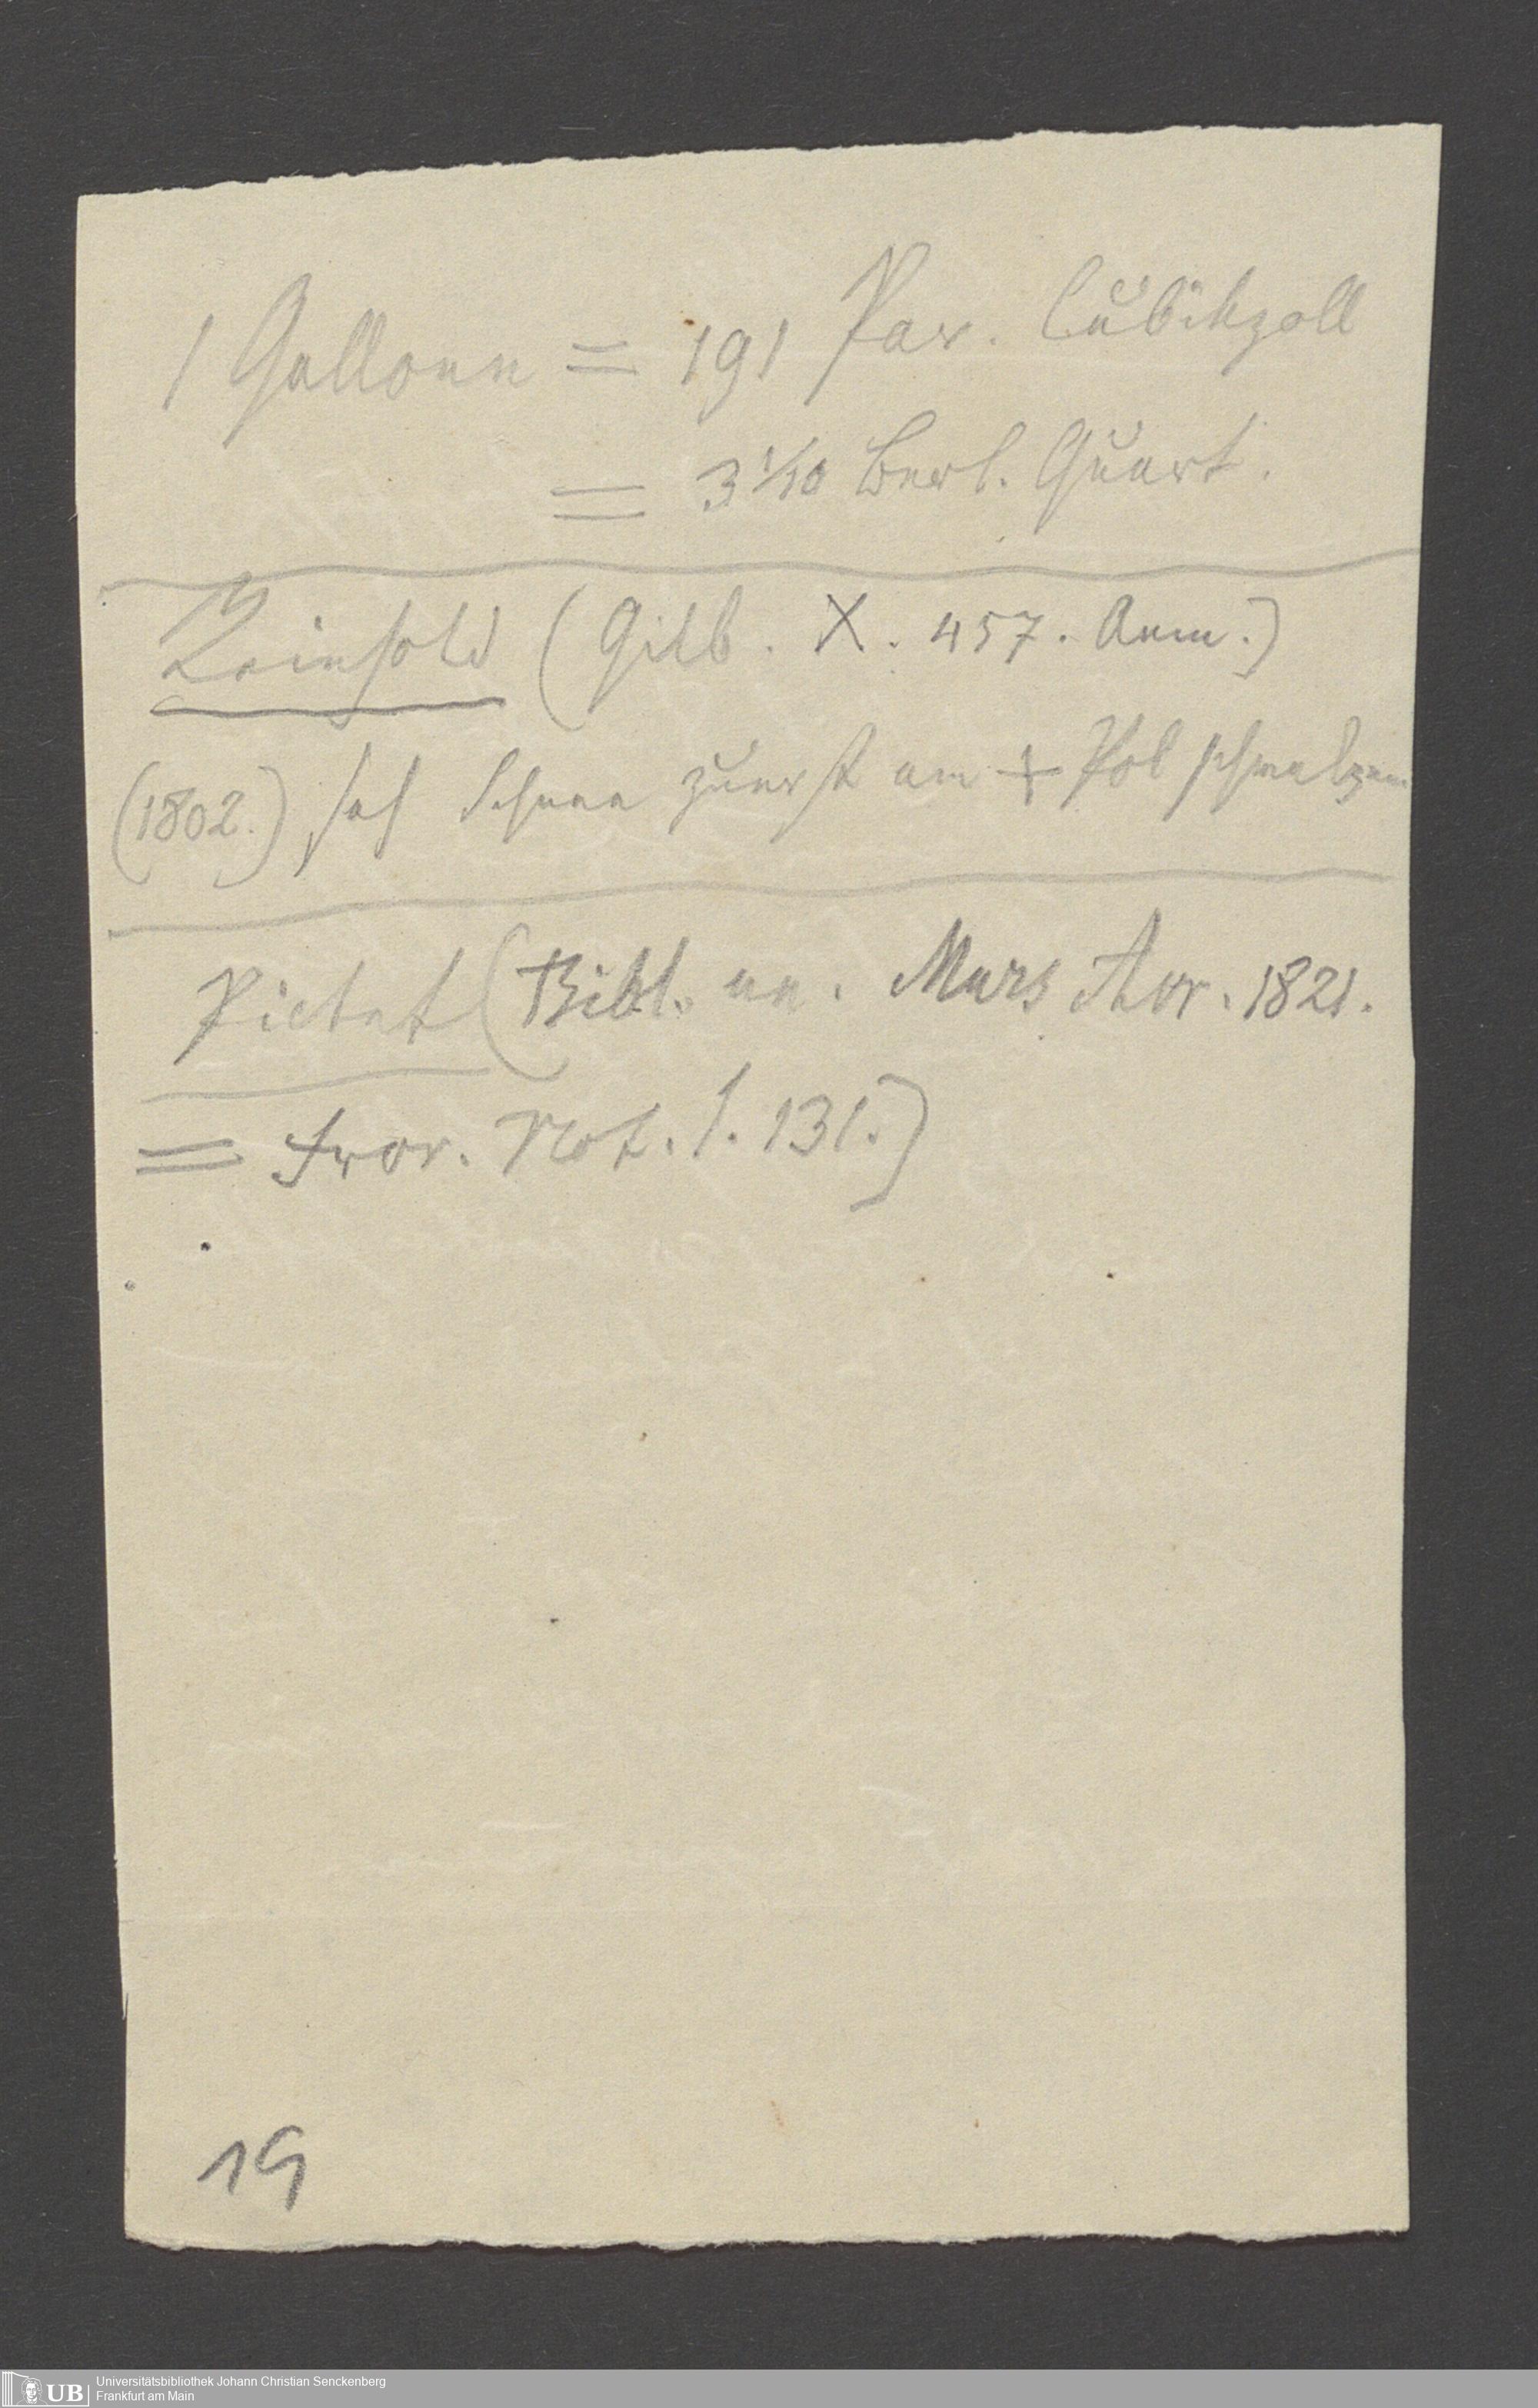 1 Gallone = 191 Par. Cubikzoll
= 3 1/10 Berl. Quart.
Reinhold (Gilb. X. 457. Anm.)
(1802.) sah Schnee zuerst am + Pol schmelzen
Pictet (Bibl. un. Mars Avr. 1821.
= Fror. Not. I. 131.)
19
UB
Universitätsbibliothek Johann Christian Senckenberg
Frankfurt am Main